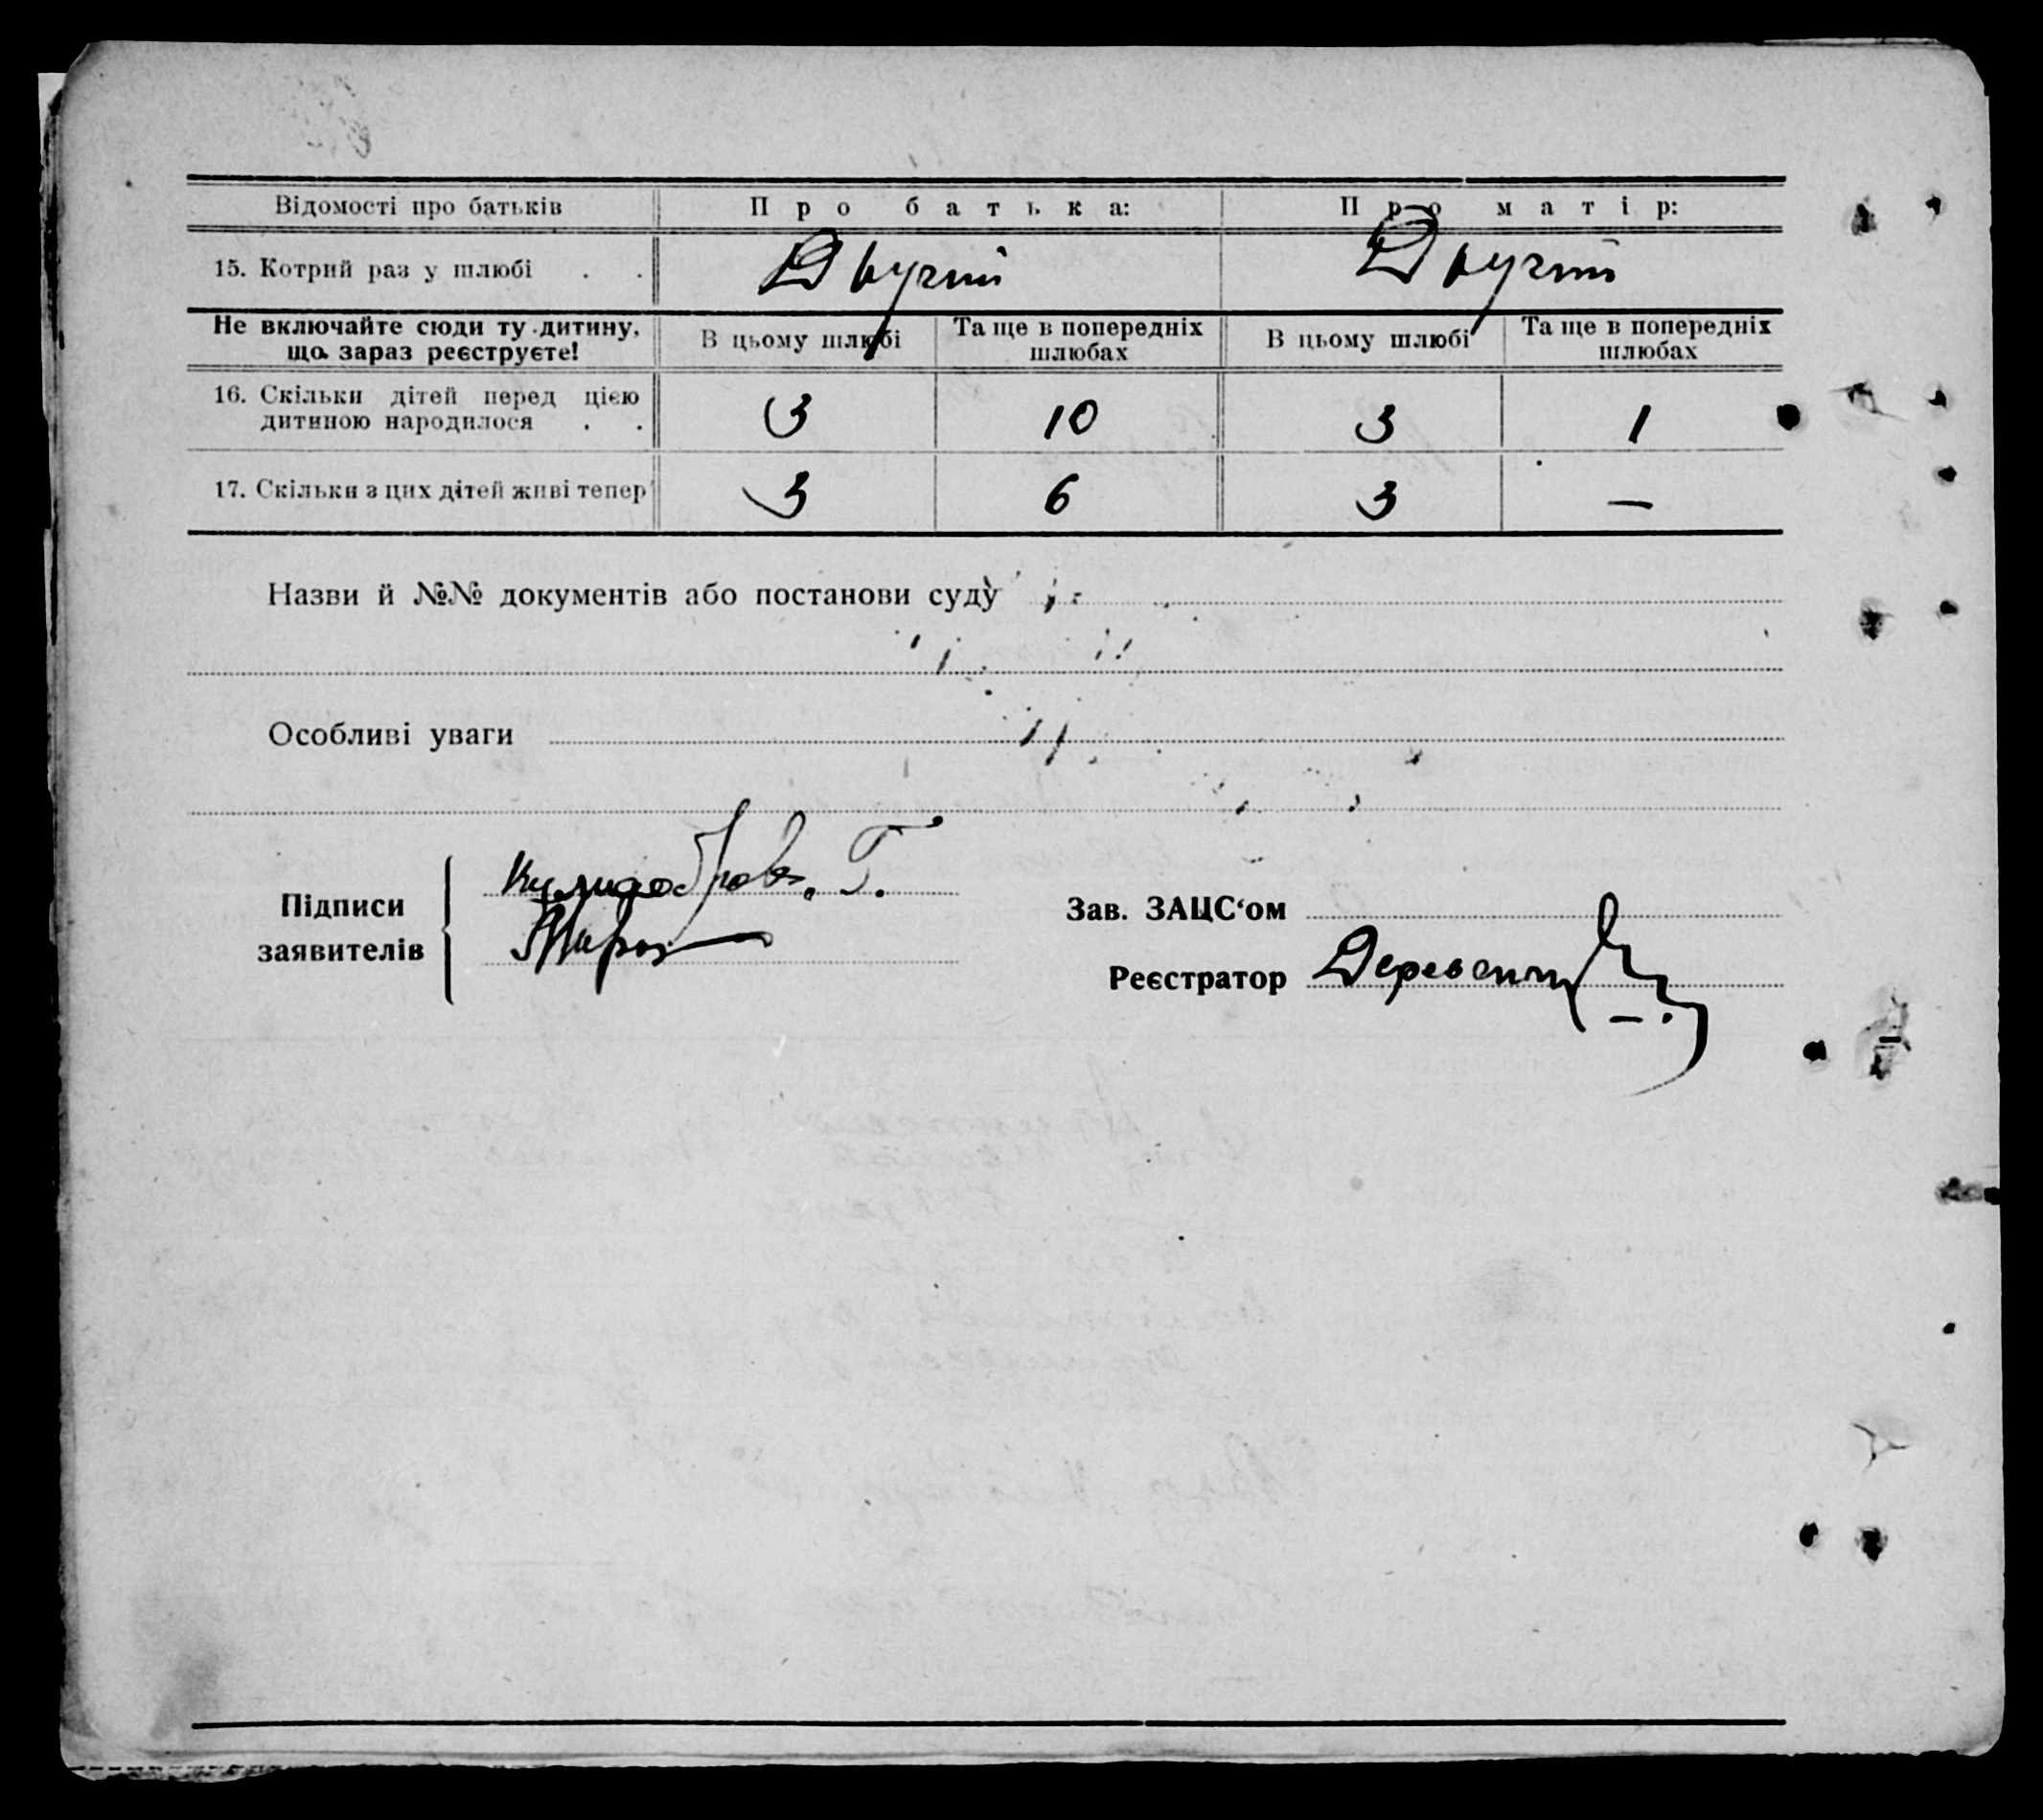 Відомості про батьків Про батька: Про матір:
15. Котрий раз у шлюбі . . Другий Другий
Не включайте сюди ту дитину, що зараз реєструєте! В цьому шлюбі Та ще в попередніх шлюбах В цьому шлюбі Та ще в попередніх шлюбах
16. Скільки дітей перед цією
дитиною народилося . . 3 10 3 1
17. Скільки з цих дітей живі тепер 3 6 3 —
Назви й №№ документів або постанови суду
Особливі уваги
Підписи
заявителів
Зав. ЗАЦС‘ом
Реєстратор